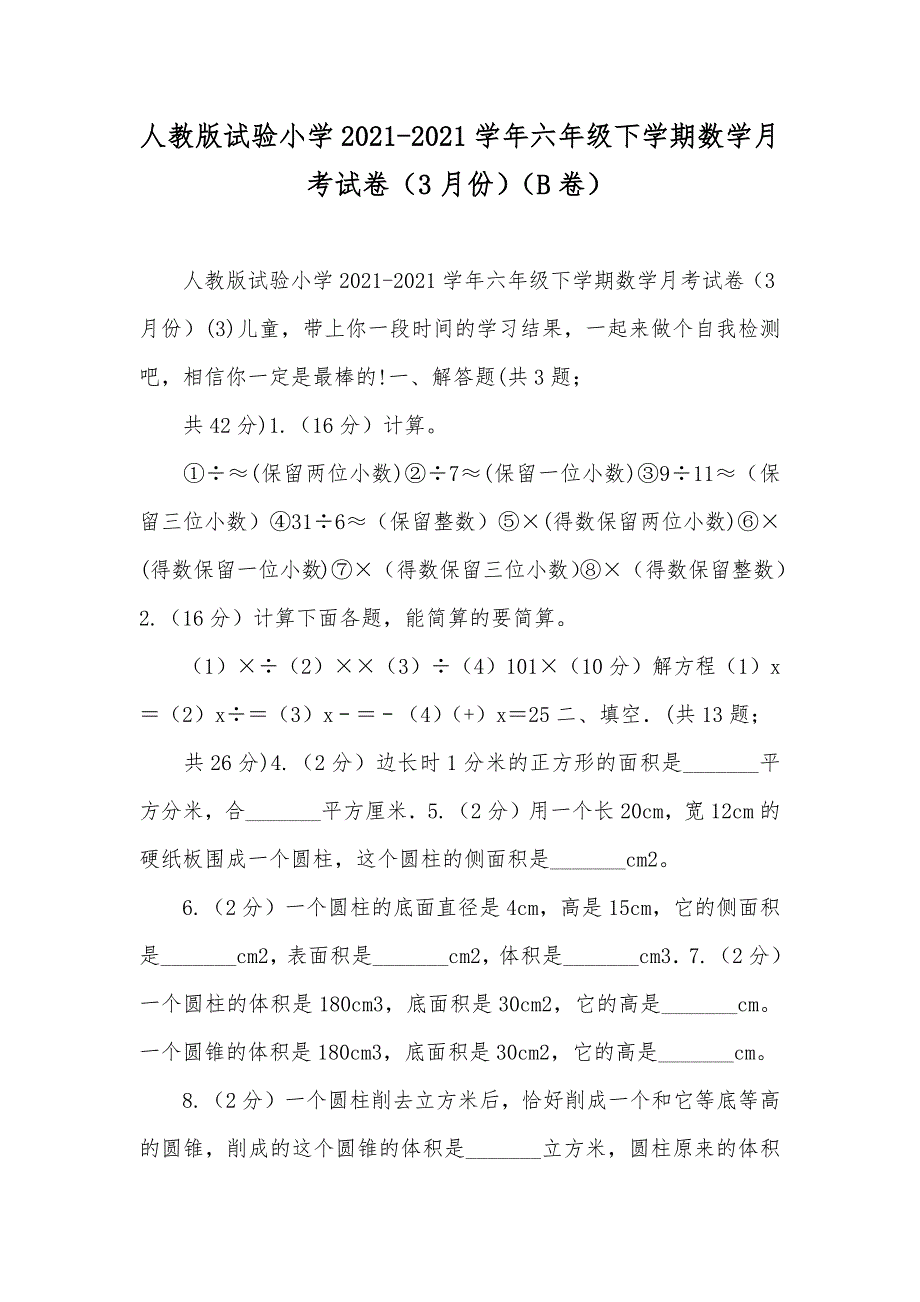 人教版试验小学2021-2021学年六年级下学期数学月
考试卷（3月份）（B卷）
人教版试验小学2021-2021学年六年级下学期数学月考试卷（3
月份）(3)儿童，带上你一段时间的学习结果，一起来做个自我检测
吧，相信你一定是最棒的!一、解答题(共3题；
共42分)1.（16分）计算。
①÷≈(保留两位小数)②÷7≈(保留一位小数)③9÷11≈（保
留三位小数）④31÷6≈（保留整数）⑤×(得数保留两位小数)⑥×
(得数保留一位小数)⑦×（得数保留三位小数)⑧×（得数保留整数）
2.（16分）计算下面各题，能简算的要简算。
（1）×÷（2）××（3）÷（4）101×（10分）解方程（1）x
＝（2）x÷＝（3）x﹣＝﹣（4）(+）x＝25二、填空．(共13题；
共26分)4.（2分）边长时1分米的正方形的面积是_______平
方分米，合_______平方厘米．5.（2分）用一个长20cm，宽12cm的
硬纸板围成一个圆柱，这个圆柱的侧面积是_______cm2。
6.（2分）一个圆柱的底面直径是4cm，高是15cm，它的侧面积
是_______cm2，表面积是_______cm2，体积是_______cm3．7.（2分）
一个圆柱的体积是180cm3，底面积是30cm2，它的高是_______cm。
一个圆锥的体积是180cm3，底面积是30cm2，它的高是_______cm。
8.（2分）一个圆柱削去立方米后，恰好削成一个和它等底等高
的圆锥，削成的这个圆锥的体积是_______立方米，圆柱原来的体积